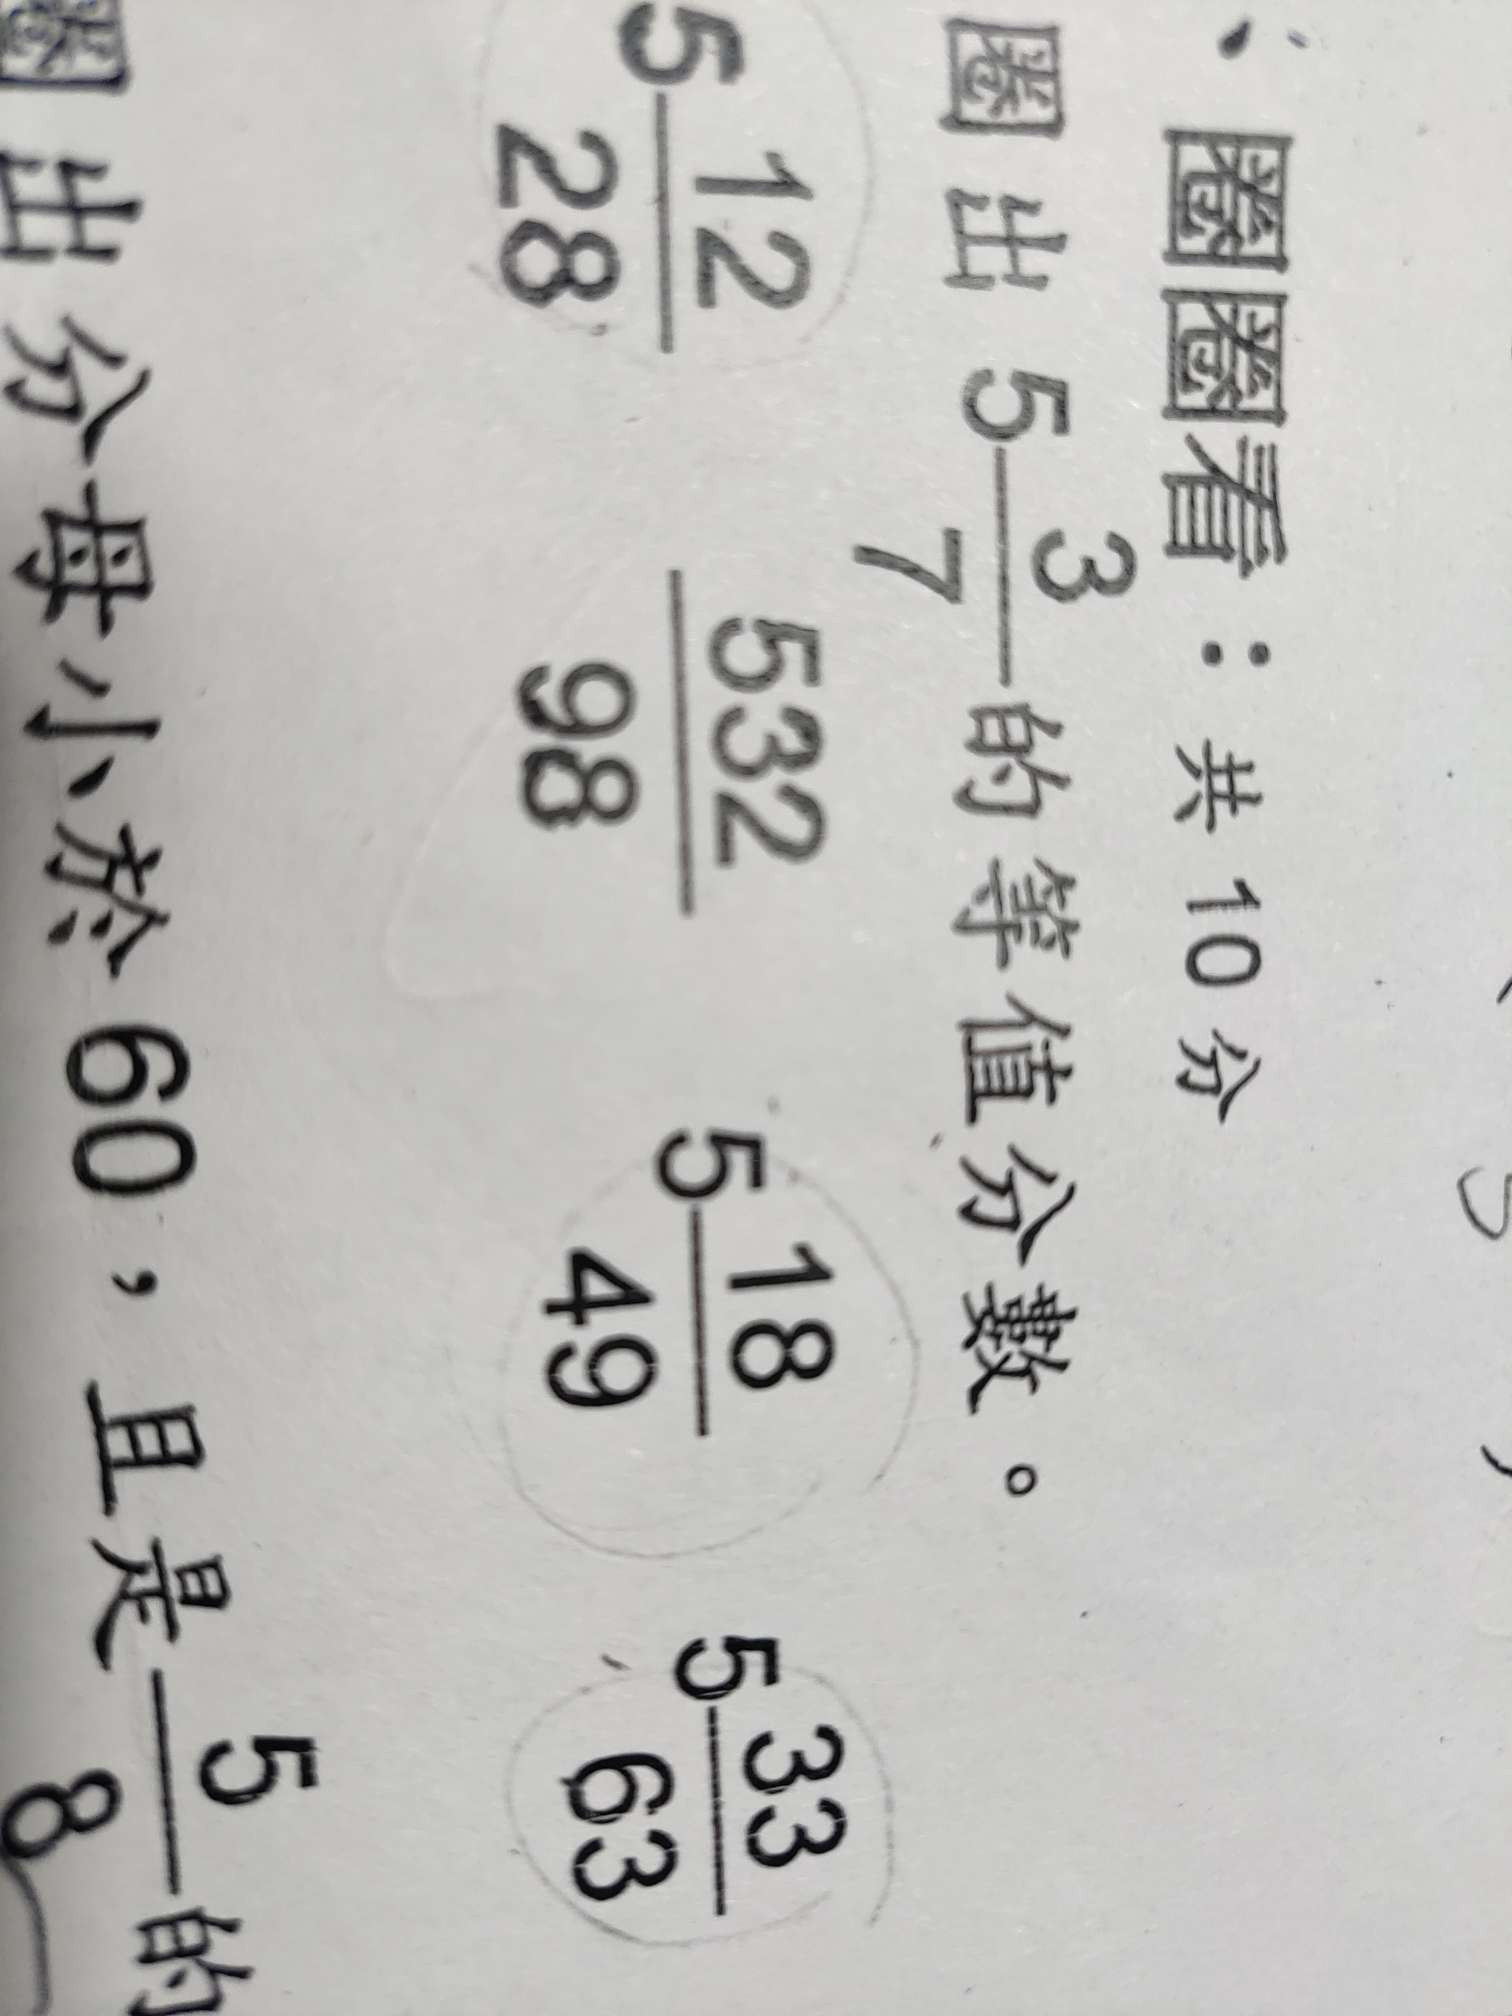 、圈圈看：共10分
圈出 5 3/7 的等值分數。
5 12/28  532/98  5 18/49  5 33/63
圈出分母小於60，且是 5/8 的